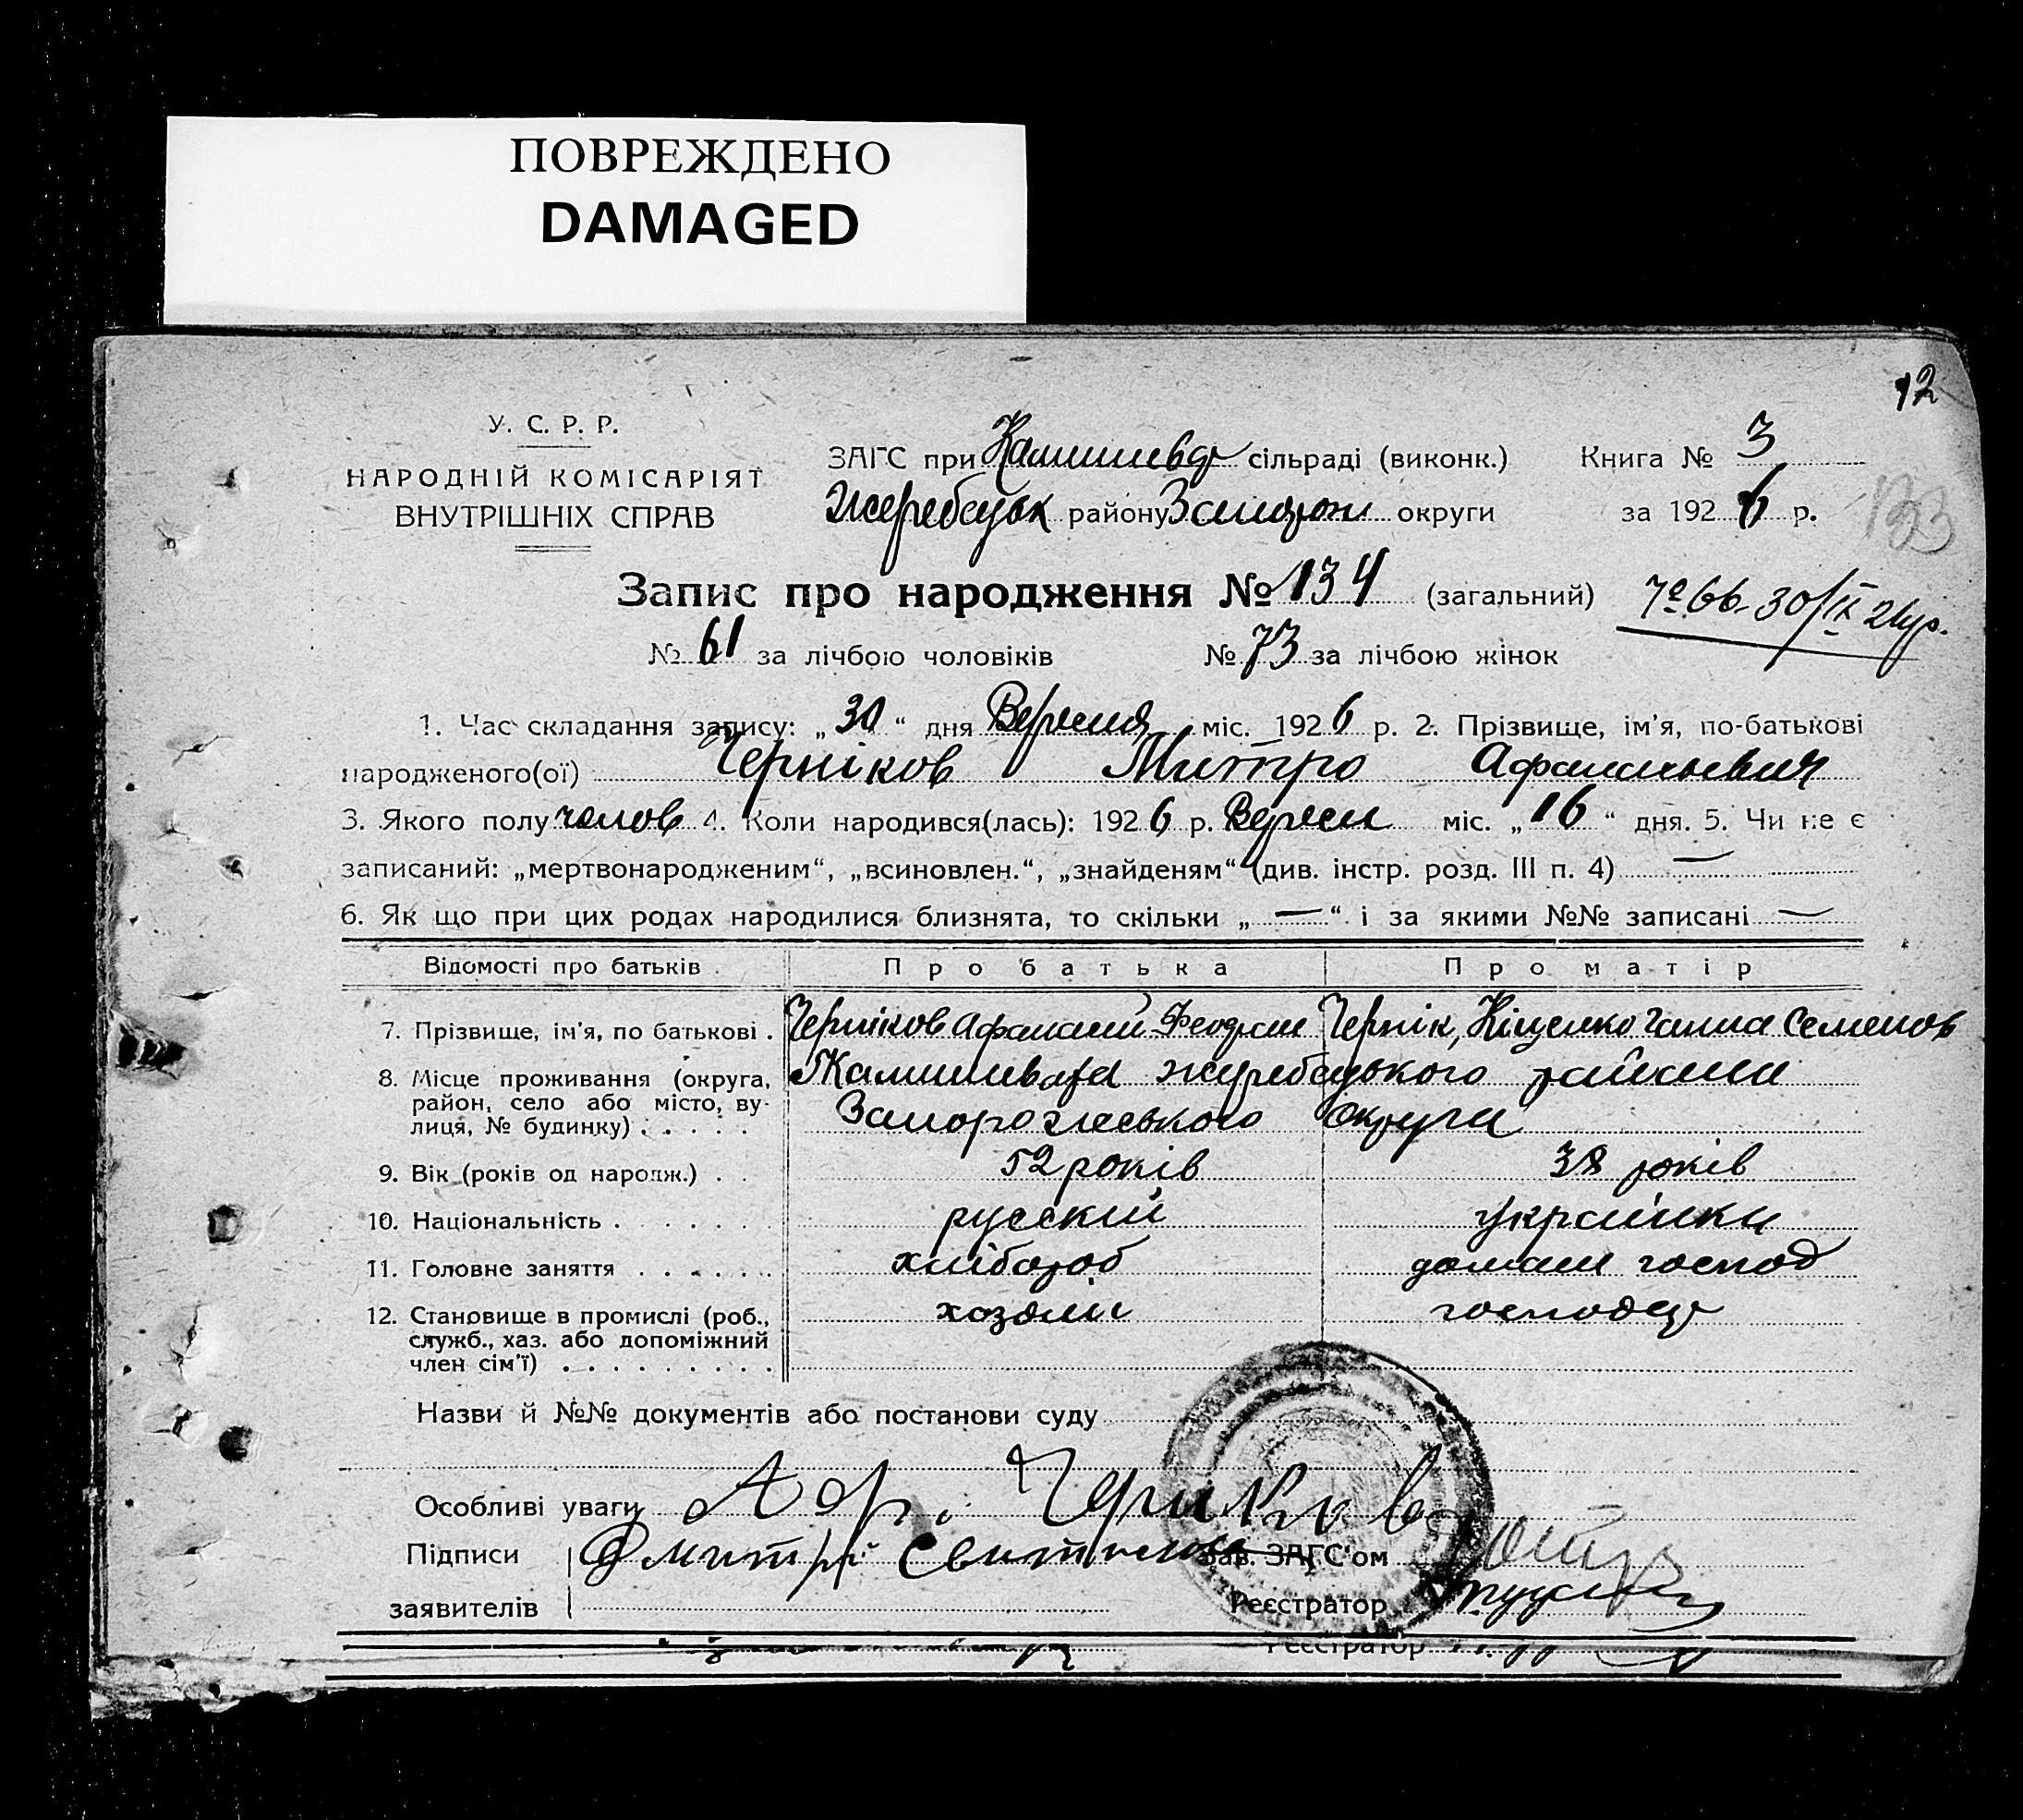 ПОВРЕЖДЕНО
DAMAGED
12
У. С. Р. Р.
НАРОДНІЙ КОМІСАРІЯТ
ВНУТРІШНІХ СПРАВ
ЗАГС при сільраді (виконк.) Книга № 3
району округи за 1926 р.
133
Запис про народження № 134 (загальний)
№ 61 за лічбою чоловіків № 73 за лічбою жінок
1. Час складання запису: „30“ дня Вересня міс. 1926 р. 2. Прізвище, ім'я, по-батькові
народженого(ої) Черніков Митро Афанасьевич
3. Якого полу чолов 4. Коли народився(лась): 1926 р. Вересн міс. „16“ дня. 5. Чи не є
записаний: „мертвонародженим“, „всиновлен.“, „знайденям“ (див. інстр. розд. III п. 4) —
6. Як що при цих родах народилися близнята, то скільки „—“ і за якими №№ записані —
Відомості про батьків Про батька Про матір
7. Прізвище, ім'я, по батькові . Черніков Афанасий Феодосии Чернік, Кіценко Ганна Семенов
8. Місце проживання (округа, район, село або місто, вулиця, № будинку) . . . . . Жеребецького района
Запорожського округи
9. Вік (років од народж.) . . 52 років 38 років
10. Національність . . . . . . . русский українка
11. Головне заняття . . . . . . хлібороб домашн господ
12. Становище в промислі (роб., служб., хаз. або допоміжний член сім'ї) . . . . . . . . . хозяин
Назви й №№ документів або постанови суду
Особливі уваги
Підписи Дмитрй Зав. ЗАГС'ом
заявителів Реєстратор
Реєстратор